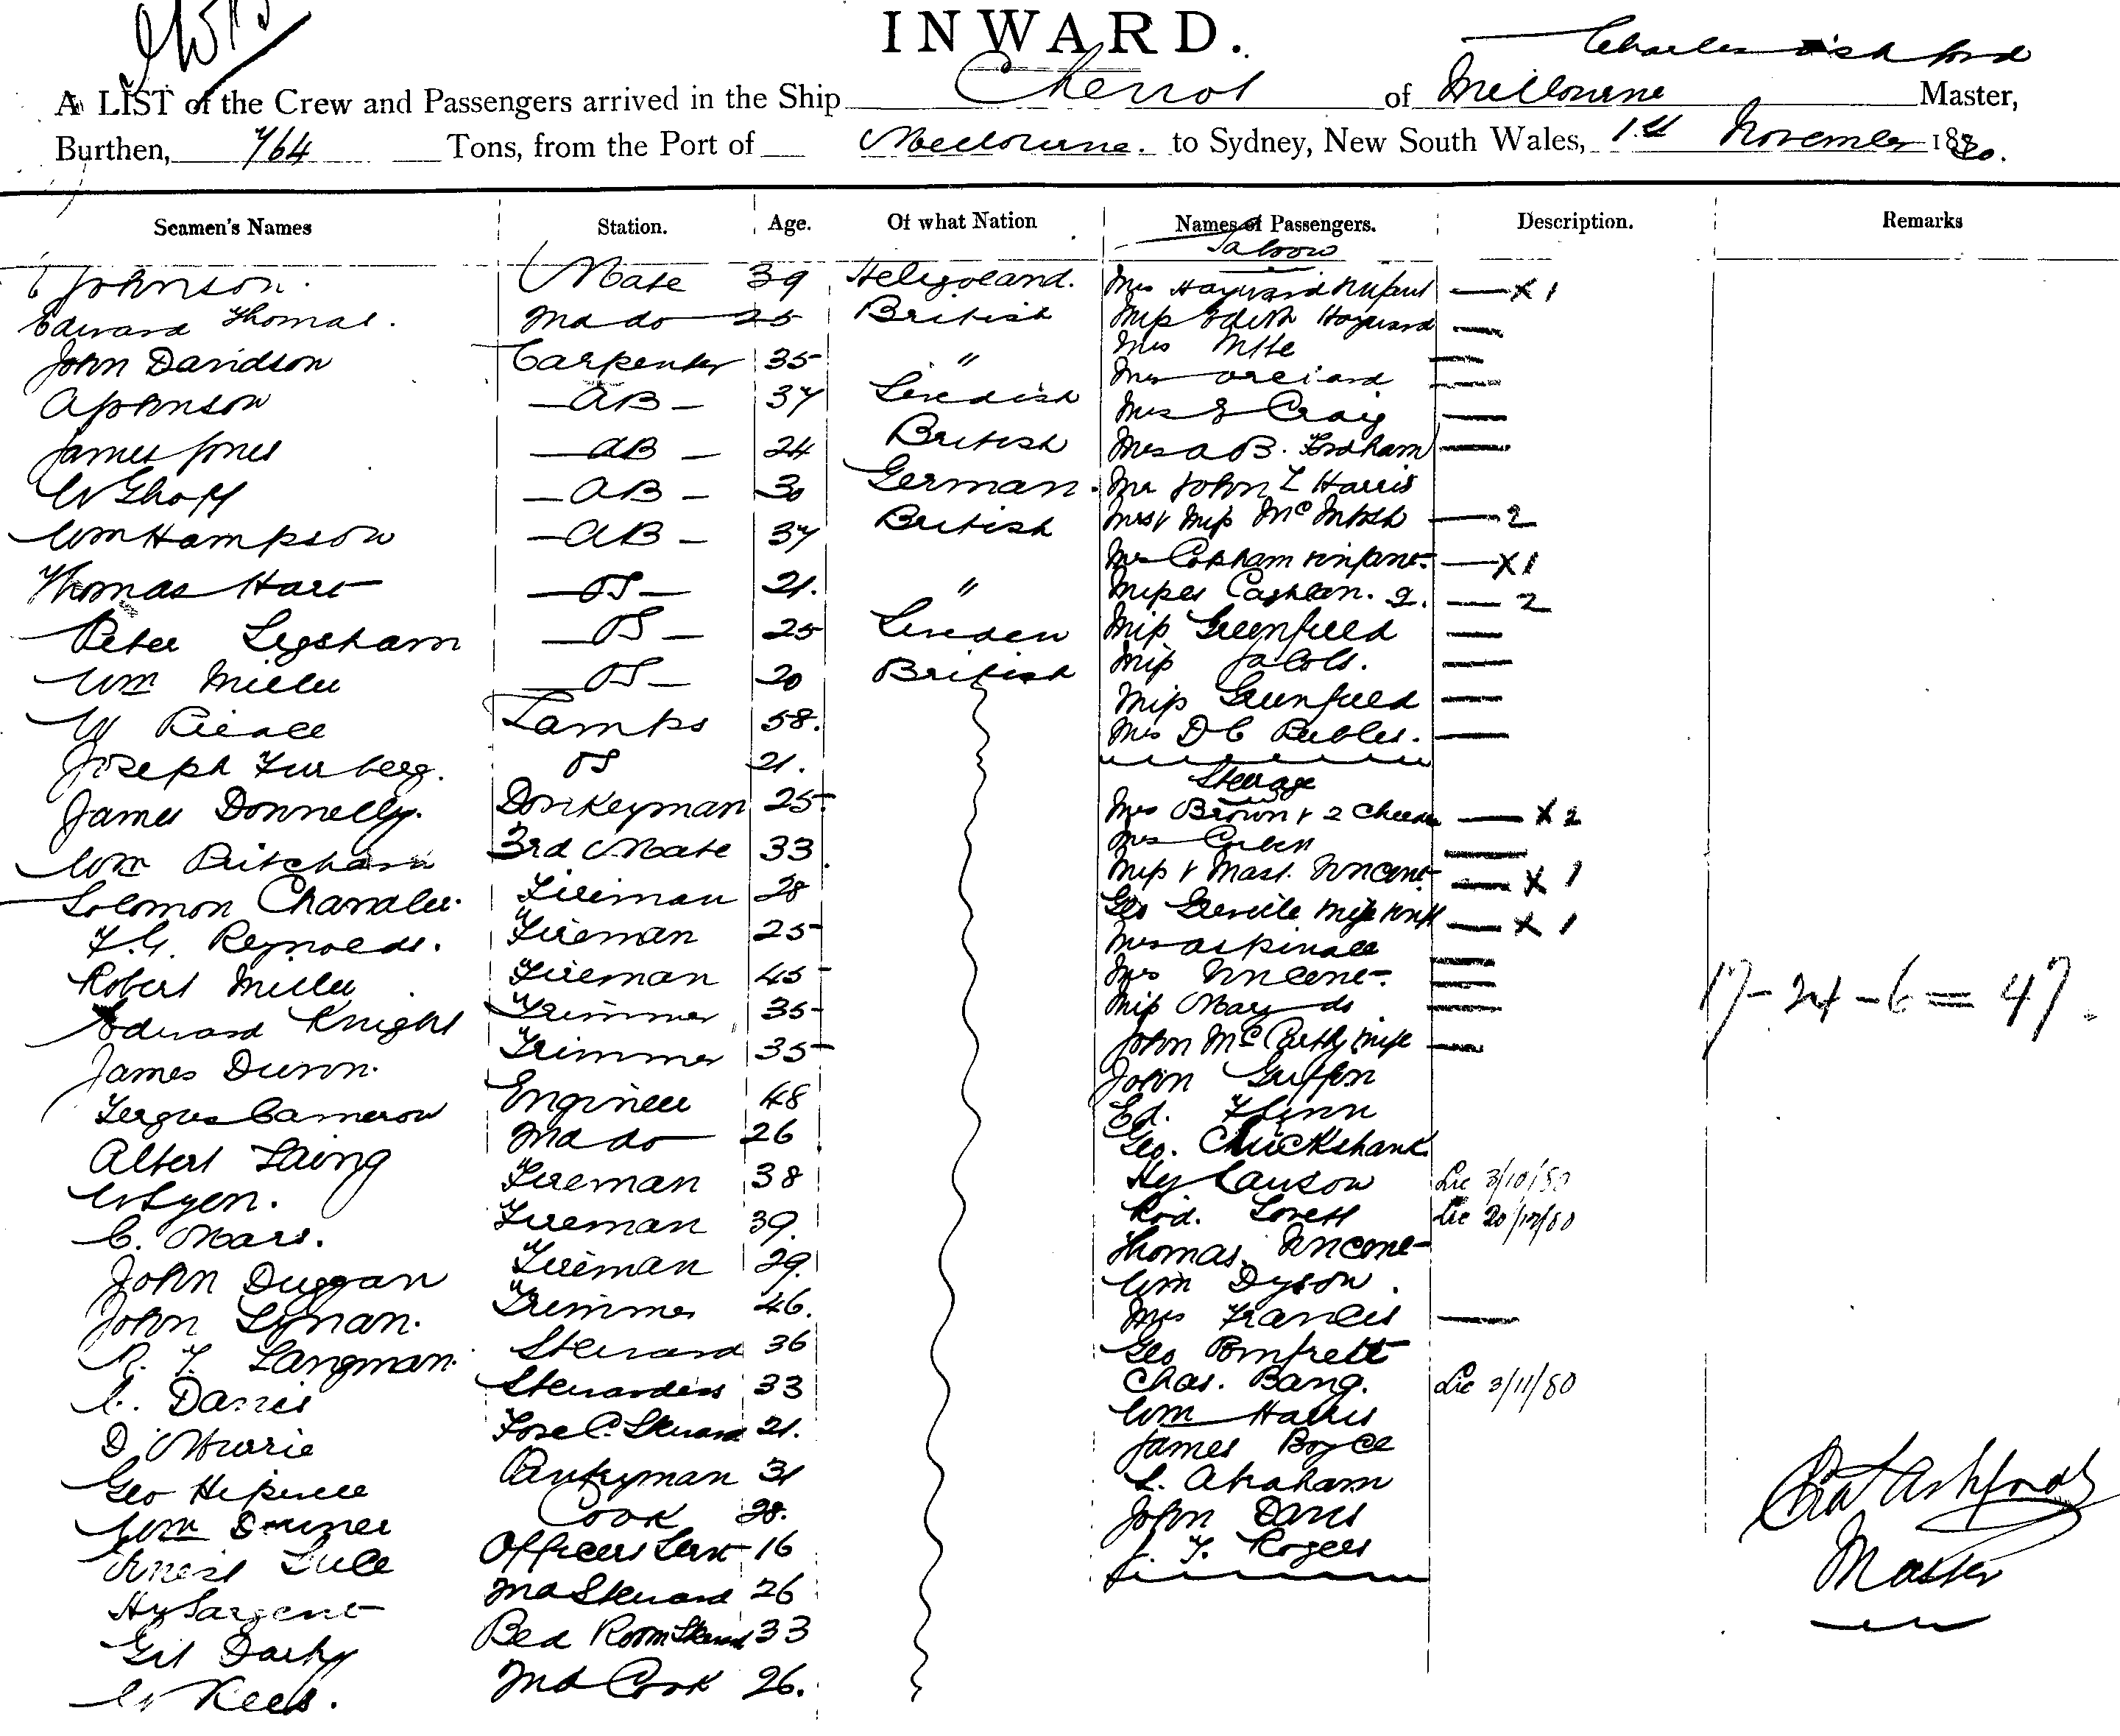 INWARD.
Charles Ashford
A LIST of the Crew and Passengers arrived in the Ship Cheviot of Melbourne Master,
Burthen, 764 Tons, from the Port of Melbourne. to Sydney, New South Wales, 1st November 1880.
Seamen's Names Station. Age. Of what Nation Names of Passengers. Description. Remarks
Saloon
Johnson. Mate 39 Heligoland. Mrs Hayward & Infant — X 1
Edward Thomas. 2nd do 25 British Miss Edith Hayward —
John Davidson Carpenter 35 " Mrs —
A Johnson — AB — 37 Swedish Mrs —
James Jones — AB — 24 British Mrs E Craig —
W Ghoff — AB — 30 German. Mrs A B. Fordham —
Wm Hampson — AB — 37 British Mr John L Harris
Thomas Hart — OS — 21. " Mrs & Miss McIntosh — 2
Peter Legsham — OS — 25 Sweden Mrs Copham & infant — X 1
Wm Miller — OS — 20 British Misses Cashlan. 2. — 2
W Pierce Lamps 58. Miss Greenfield —
Joseph Furberg. OS 21. Miss Jacobs. —
James Donnelly. Donkeyman 25 Miss Greenfield —
Wm Pritchard 3rd Mate 33 Mrs D C Peebles. —
Steerage
Solomon Chandler. Fireman 28 Mrs Brown & 2 Children — X 2
F. G. Reynolds. Fireman 25 Mrs —
Robert Miller Fireman 45 Miss & Mast. Vincent — X 1
Edward Knight Trimmer 35 Geo Greville Wife & Inft — X 1
James Dunn. Trimmer 35 Mrs Aspinall —
Fergus Cameron Engineer 48 Mrs Vincent —
Albert Laing 2nd do 26 Miss May do —
W Lyon. Fireman 38 John McCarthy Wife —
C. Mars. Fireman 39. John Griffin
John Duggan Fireman 29. Ed. Flinn
John Lynan. Trimmer 46. Geo. Cruickshank
R. F. Langman. Steward 36 Hy Lawson Lic 3/10/80
C. Davies Stewardess 33 Rod. Lovett Lic 20/10/80
D. Murie Fore C. Steward 21. Thomas Vincent
Geo Hepwell Pantryman 31 Wm Dyson.
Wm Downer Cook 28. Mrs Francis —
Ernest Luce Officers Servt 16 Geo Pomfrett
Hy Sargent 2nd Steward 26 Chas. Bang. Lic 3/11/80
Gil Darby Bed Room Steward 33 Wm Harris
W Kees. 2nd Cook 26. James Boyce
L. Abraham
John Davis
J. F. Rogers
17 - 24 - 6 = 47.
Chas Ashford
Master